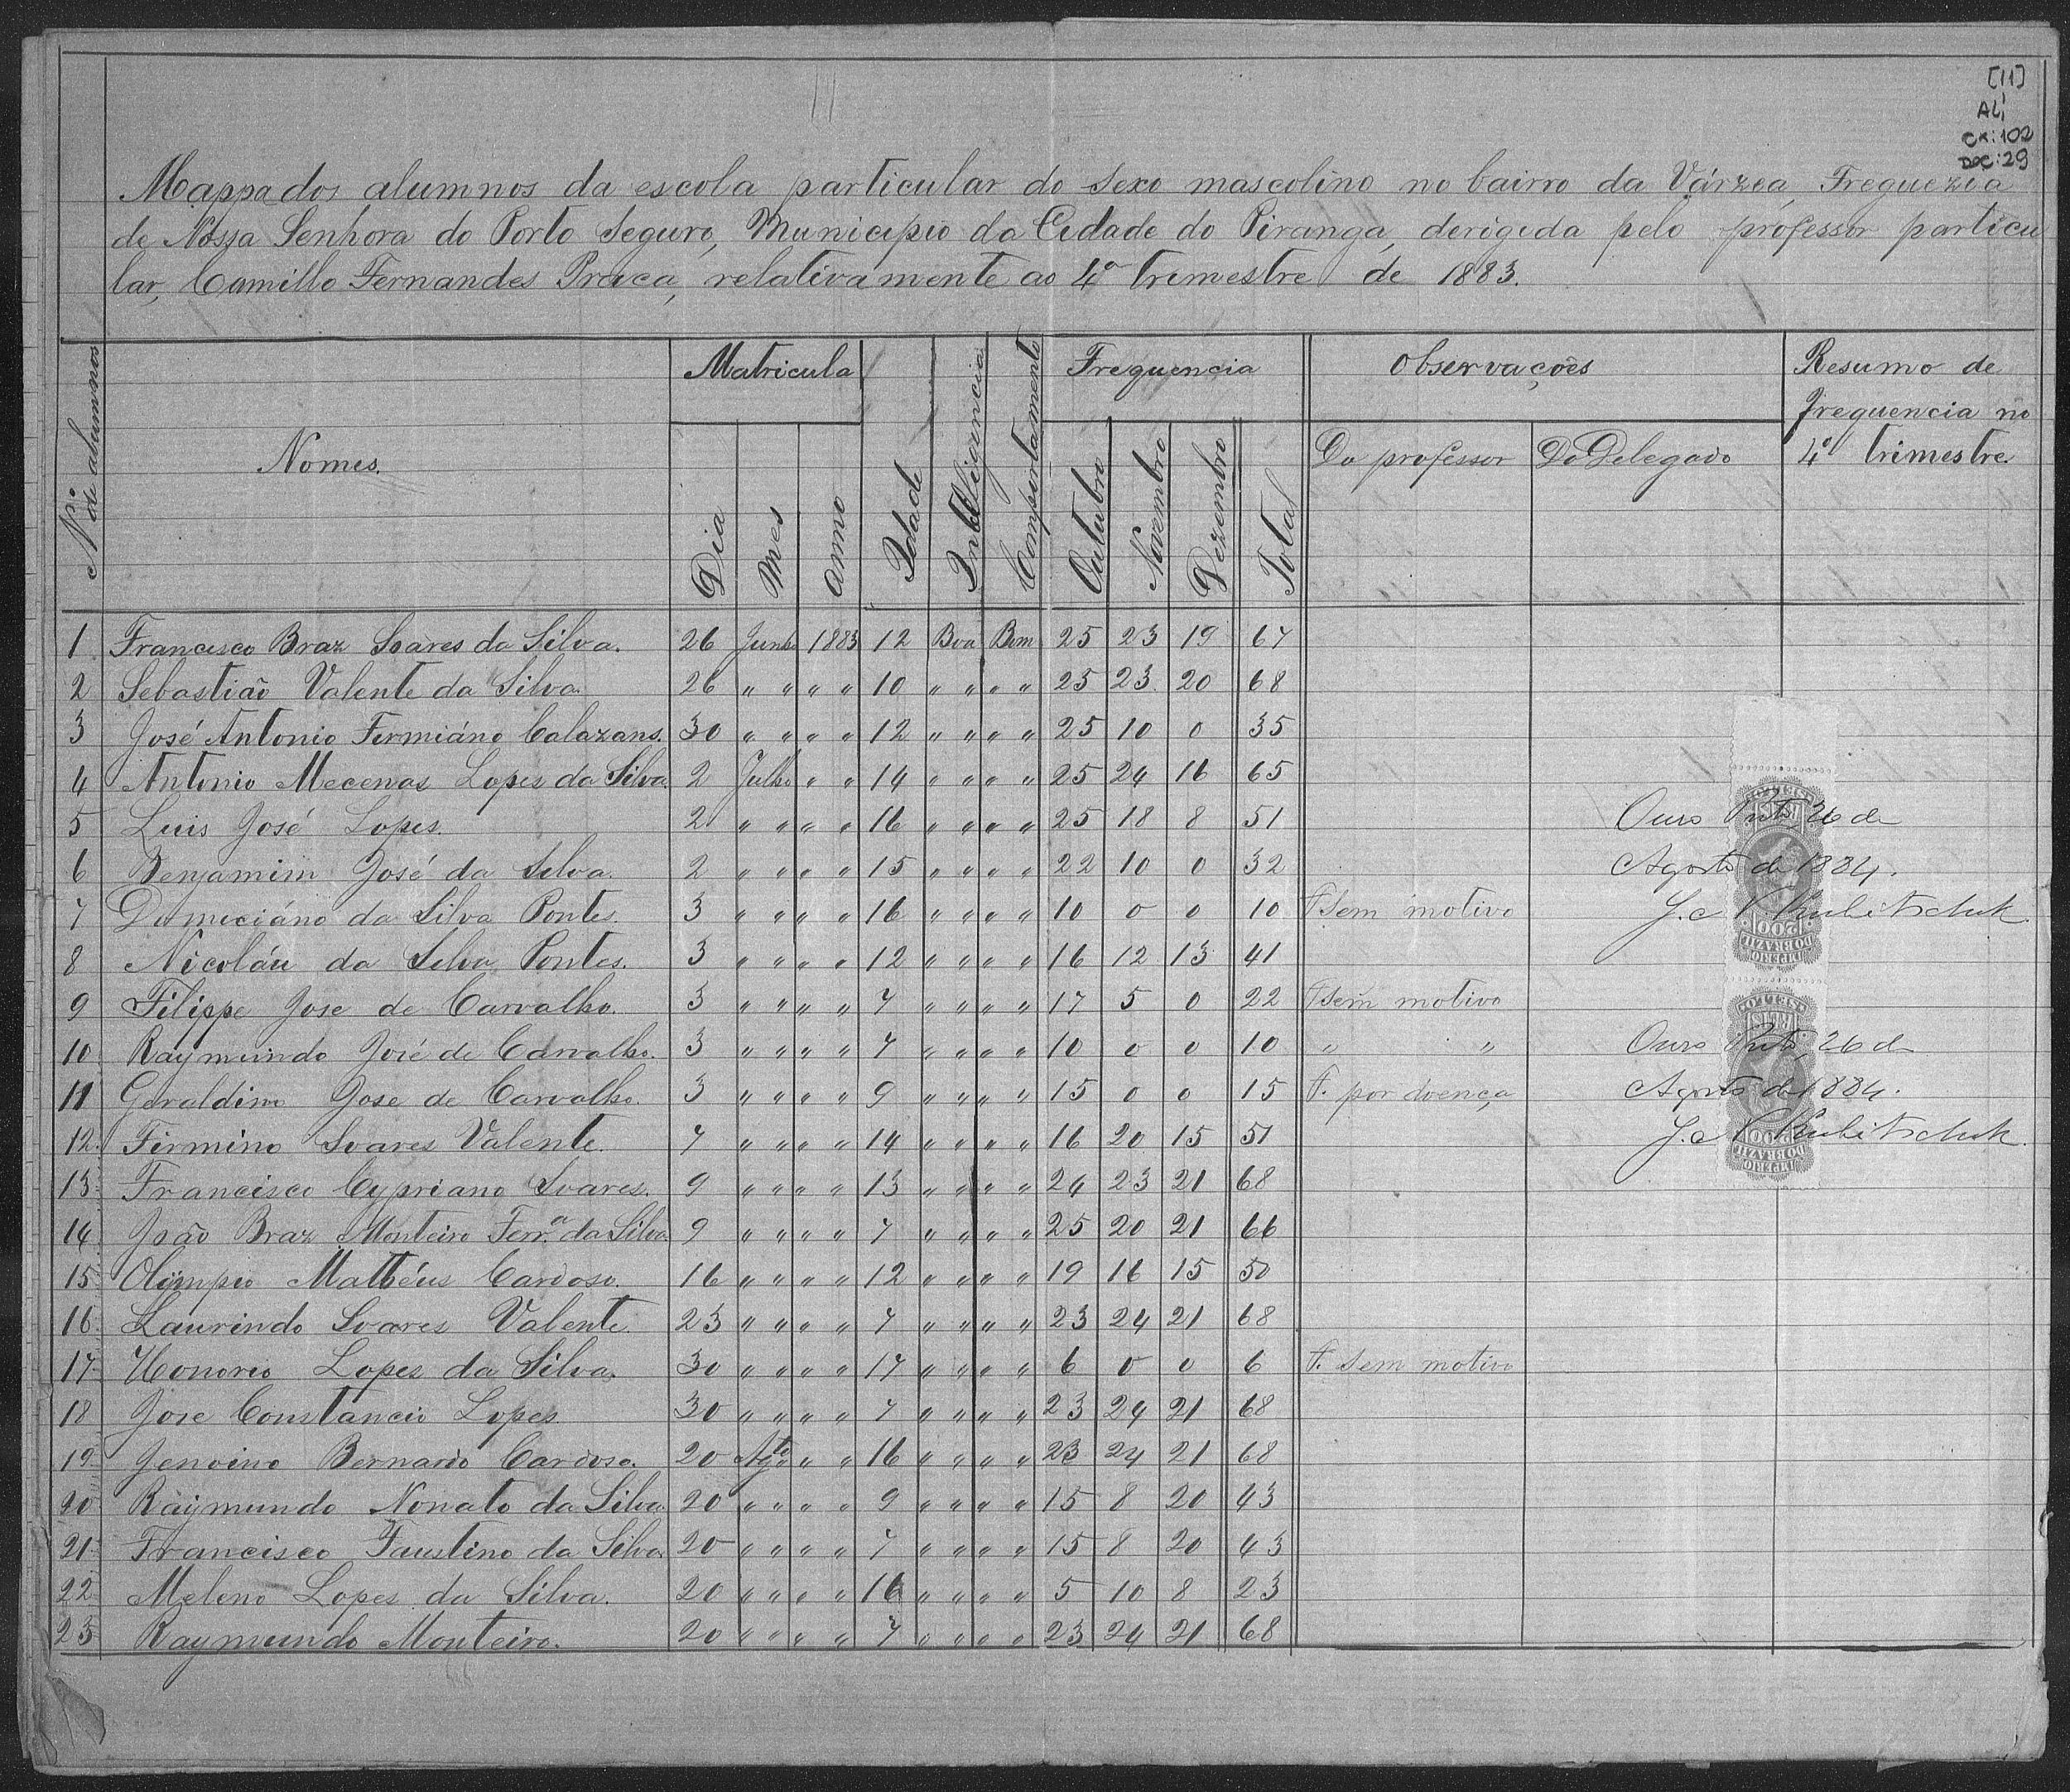 [11]
ALI
CX:102
DOC:29
Mappa dos alumnos da escola particular do sexo mascolino no bairro da Várzea, Freguezia
de Nossa Senhora do Porto Seguro, Municipio da Cidade do Piranga, derigida pelo professor particu
lar, Camillo Fernandes Praca, relativamente ao 4º trimestre de 1883.
Nº de alumnos Nomes. Matricula Idade Intelligencia Comportamento Frequencia Observações Resumo de
frequencia no
4º trimestre.
Dia Mes Anno Outubro Novembro Dezembro Total Do professor Do Delegado
1 Francisco Braz Soares da Silva. 26 Junho 1883 12 Boa Bom 25 23 19 67
2 Sebastião Valente da Silva. 26 " " " " 10 " " " " 25 23 20 68
3 José Antonio Firmiáno Calazans. 30 " " " " 12 " " " " 25 10 0 35
4 Antonio Mecenas Lopes da Silva. 2 Julho " " 14 " " " " 25 24 16 65
5 Luis José Lopes. 2 " " " " 16 " " " " 25 18 8 51
6 Benjamim José da Silva. 2 " " " " 15 " " " " 22 10 0 32
7 Domiciáno da Silva Pontes. 3 " " " " 16 " " " " 10 0 0 10 F sem motivo
8 Nicoláu da Silva Pontes. 3 " " " " 12 " " " " 16 12 13 41
9 Filippe Jose de Carvalho. 3 " " " " 7 " " " " 17 5 0 22 F sem motivo
10 Raymundo José de Carvalho. 3 " " " " 7 " " " " 10 0 0 10 " "
11 Geraldino Jose de Carvalho. 3 " " " " 9 " " " " 15 0 0 15 F. por doença
12 Firmino Soares Valente. 7 " " " " 14 " " " " 16 20 15 51
13 Francisco Cypriano Soares. 9 " " " " 13 " " " " 24 23 21 68
14 João Braz Monteiro Ferr.ª da Silva 9 " " " " 7 " " " " 25 20 21 66
15 Olimpio Mathéus Cardoso. 16 " " " " 12 " " " " 19 16 15 50
16 Laurindo Soares Valente. 23 " " " " 7 " " " " 23 24 21 68
17 Honorio Lopes da Silva. 30 " " " " 17 " " " " 6 0 0 6 F. sem motivo
18 Jose Constancio Lopes 30 " " " " 7 " " " " 23 24 21 68
19 Jenoino Bernardo Cardoso. 20 Agto " " 16 " " " " 23 24 21 68
20 Raymundo Nonato da Silva 20 " " " " 9 " " " " 15 8 20 43
21 Francisco Faustino da Silva. 20 " " " " 7 " " " " 15 8 20 43
22 Meleno Lopes da Silva. 20 " " " " 16 " " " " 5 10 8 23
23 Raymundo Monteiro. 20 " " " " 7 " " " " 23 24 21 68
Ouro Preto 26 de
Agosto de 1884.
J. C. Kubitschek
200
IMPERIO DO BRAZIL
REIS
Ouro Preto, 26 de
Agosto de 1884.
J. C. Kubitschek
200
IMPERIO DO BRAZIL